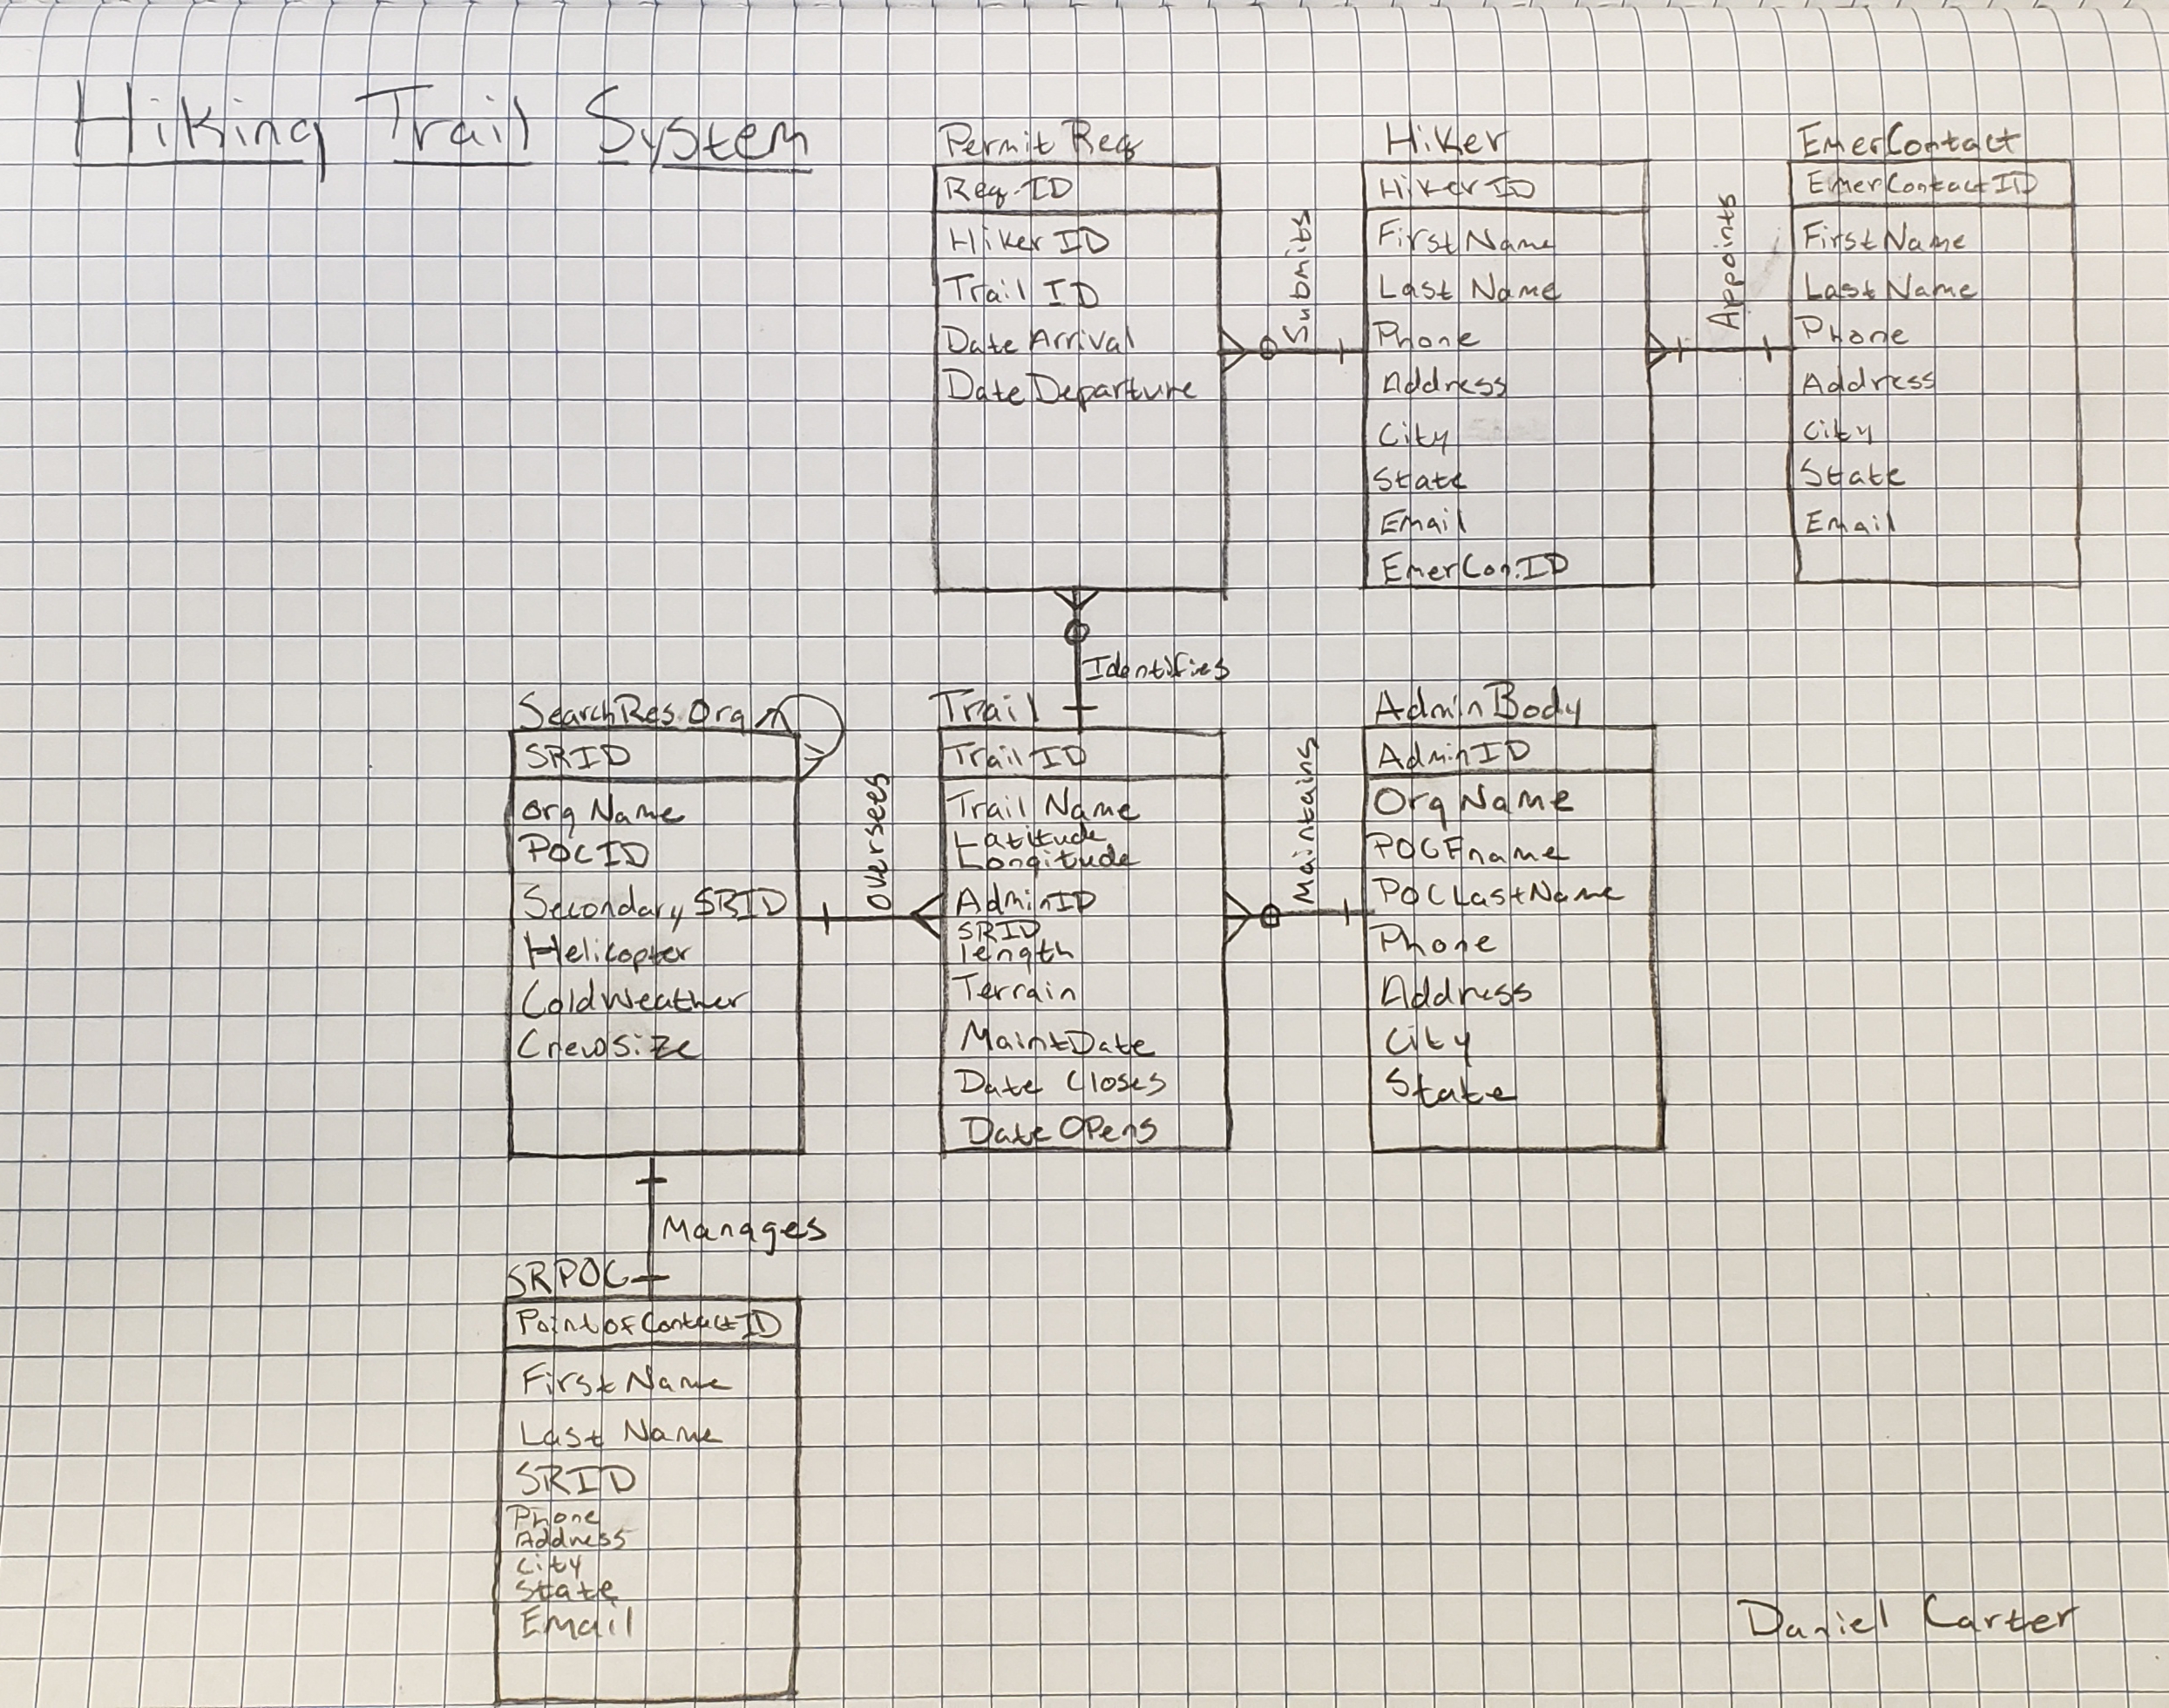 Hiking Trail System
Permit Req
Req. ID
Hiker ID
Trail ID
Date Arrival
Date Departure
Submits
Hiker
Hiker ID
First Name
Last Name
Phone
Address
City
State
Email
EmerCon.ID
Appoints
EmerContact
EmerContactID
First Name
Last Name
Phone
Address
City
State
Email
Identifies
SearchRes.Org
SRID
Org Name
POCID
Secondary SRID
Helicopter
ColdWeather
CrewSize
Oversees
Trail
Trail ID
Trail Name
Latitude
Longitude
AdminID
SRID
length
Terrain
MaintDate
Date Closes
Date Opens
Maintains
AdminBody
AdminID
Org Name
POCFname
POCLastName
Phone
Address
City
State
Manages
SRPOC
PointofContactID
First Name
Last Name
SRID
Phone
Address
City
State
Email
Daniel Carter